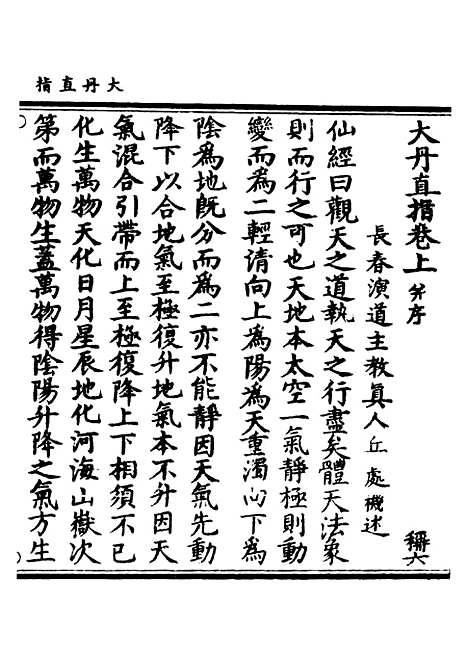 大丹直指
大丹直指卷上并序
稱六
長春演道主教真人丘處機述
仙經曰觀天之道執天之行盡矣體天法象
則而行之可也天地本太空一氣靜極則動
變而爲二輕清向上爲陽爲天重濁向下爲
陰爲地旣分而爲二亦不能靜因天氣先動
降下以合地氣至極復升地氣本不升因天
氣混合引帶而上至極復降上下相須不已
化生萬物天化日月星辰地化河海山嶽次
第而萬物生蓋萬物得陰陽升降之氣方生